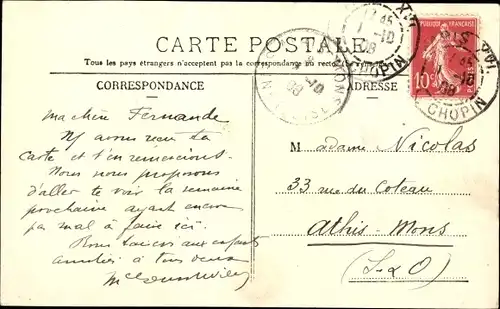 CARTE POSTALE
Tous les pays étrangers n'acceptent pas la correspondance au recto
CORRESPONDANCE
ADRESSE
Ma chère Fernande
avons reçu ta
carte et t'en remercions.
Nous nous proposons
d'aller te voir la semaine
prochaine ayant encore
pas mal à faire ici.
Bons baisers aux enfants
amitiés à tous deux
Madame Nicolas
33 rue du Coteau
Athis-Mons
(S-&O)
REPUBLIQUE FRANÇAISE
10c
CHOPIN
CHOPIN
XVI
45
1-10
08
MONS